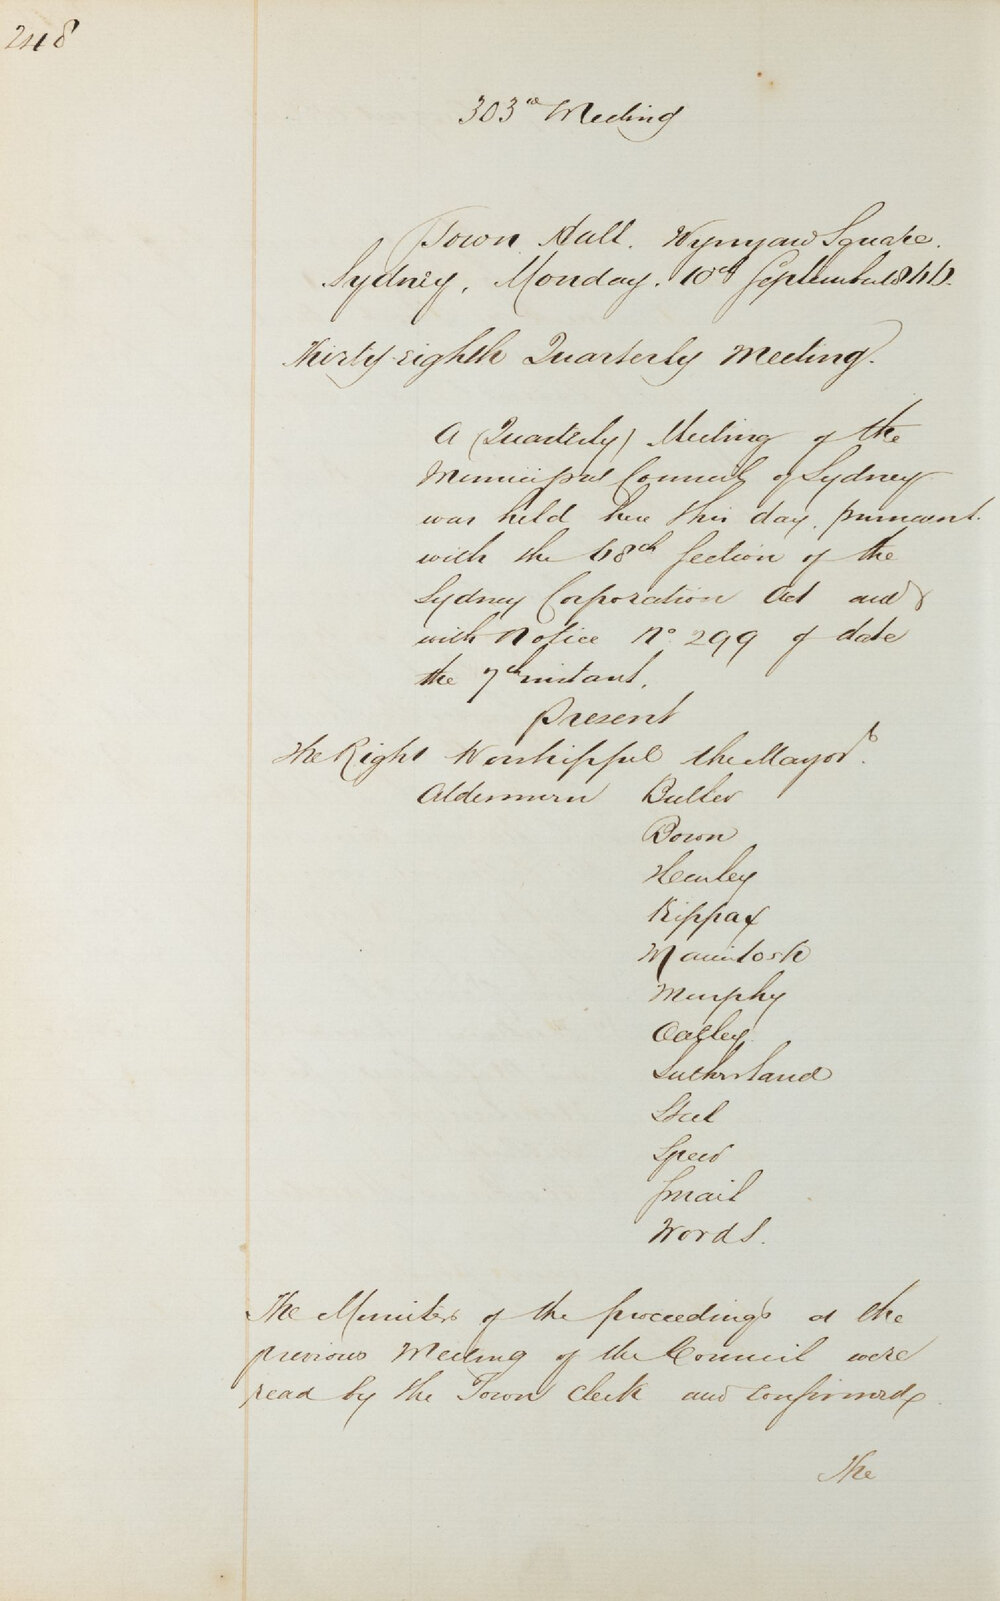 248
303rd Meeting
Town Hall. Wynyard Square.
Sydney, Monday. 10th September
Thirty-eighth Quarterly Meeting.
A (Quarterly) Meeting of the
Municipal Council of Sydney
was held here this day, pursuant
with the 48th Section of the
Sydney Corporation Act and
with Notice No. 299 of date
the 7th instant.
Present
The Right Worshipful the Mayor.
Aldermen Butler
Bown
Henley
Kippax
Macintosh
Murphy
Oatley
Sutherland
Steel
Speer
Smail
Words.
The Minutes of the proceedings at the
previous Meeting of the Council were
read by the Town Clerk and confirmed.
The